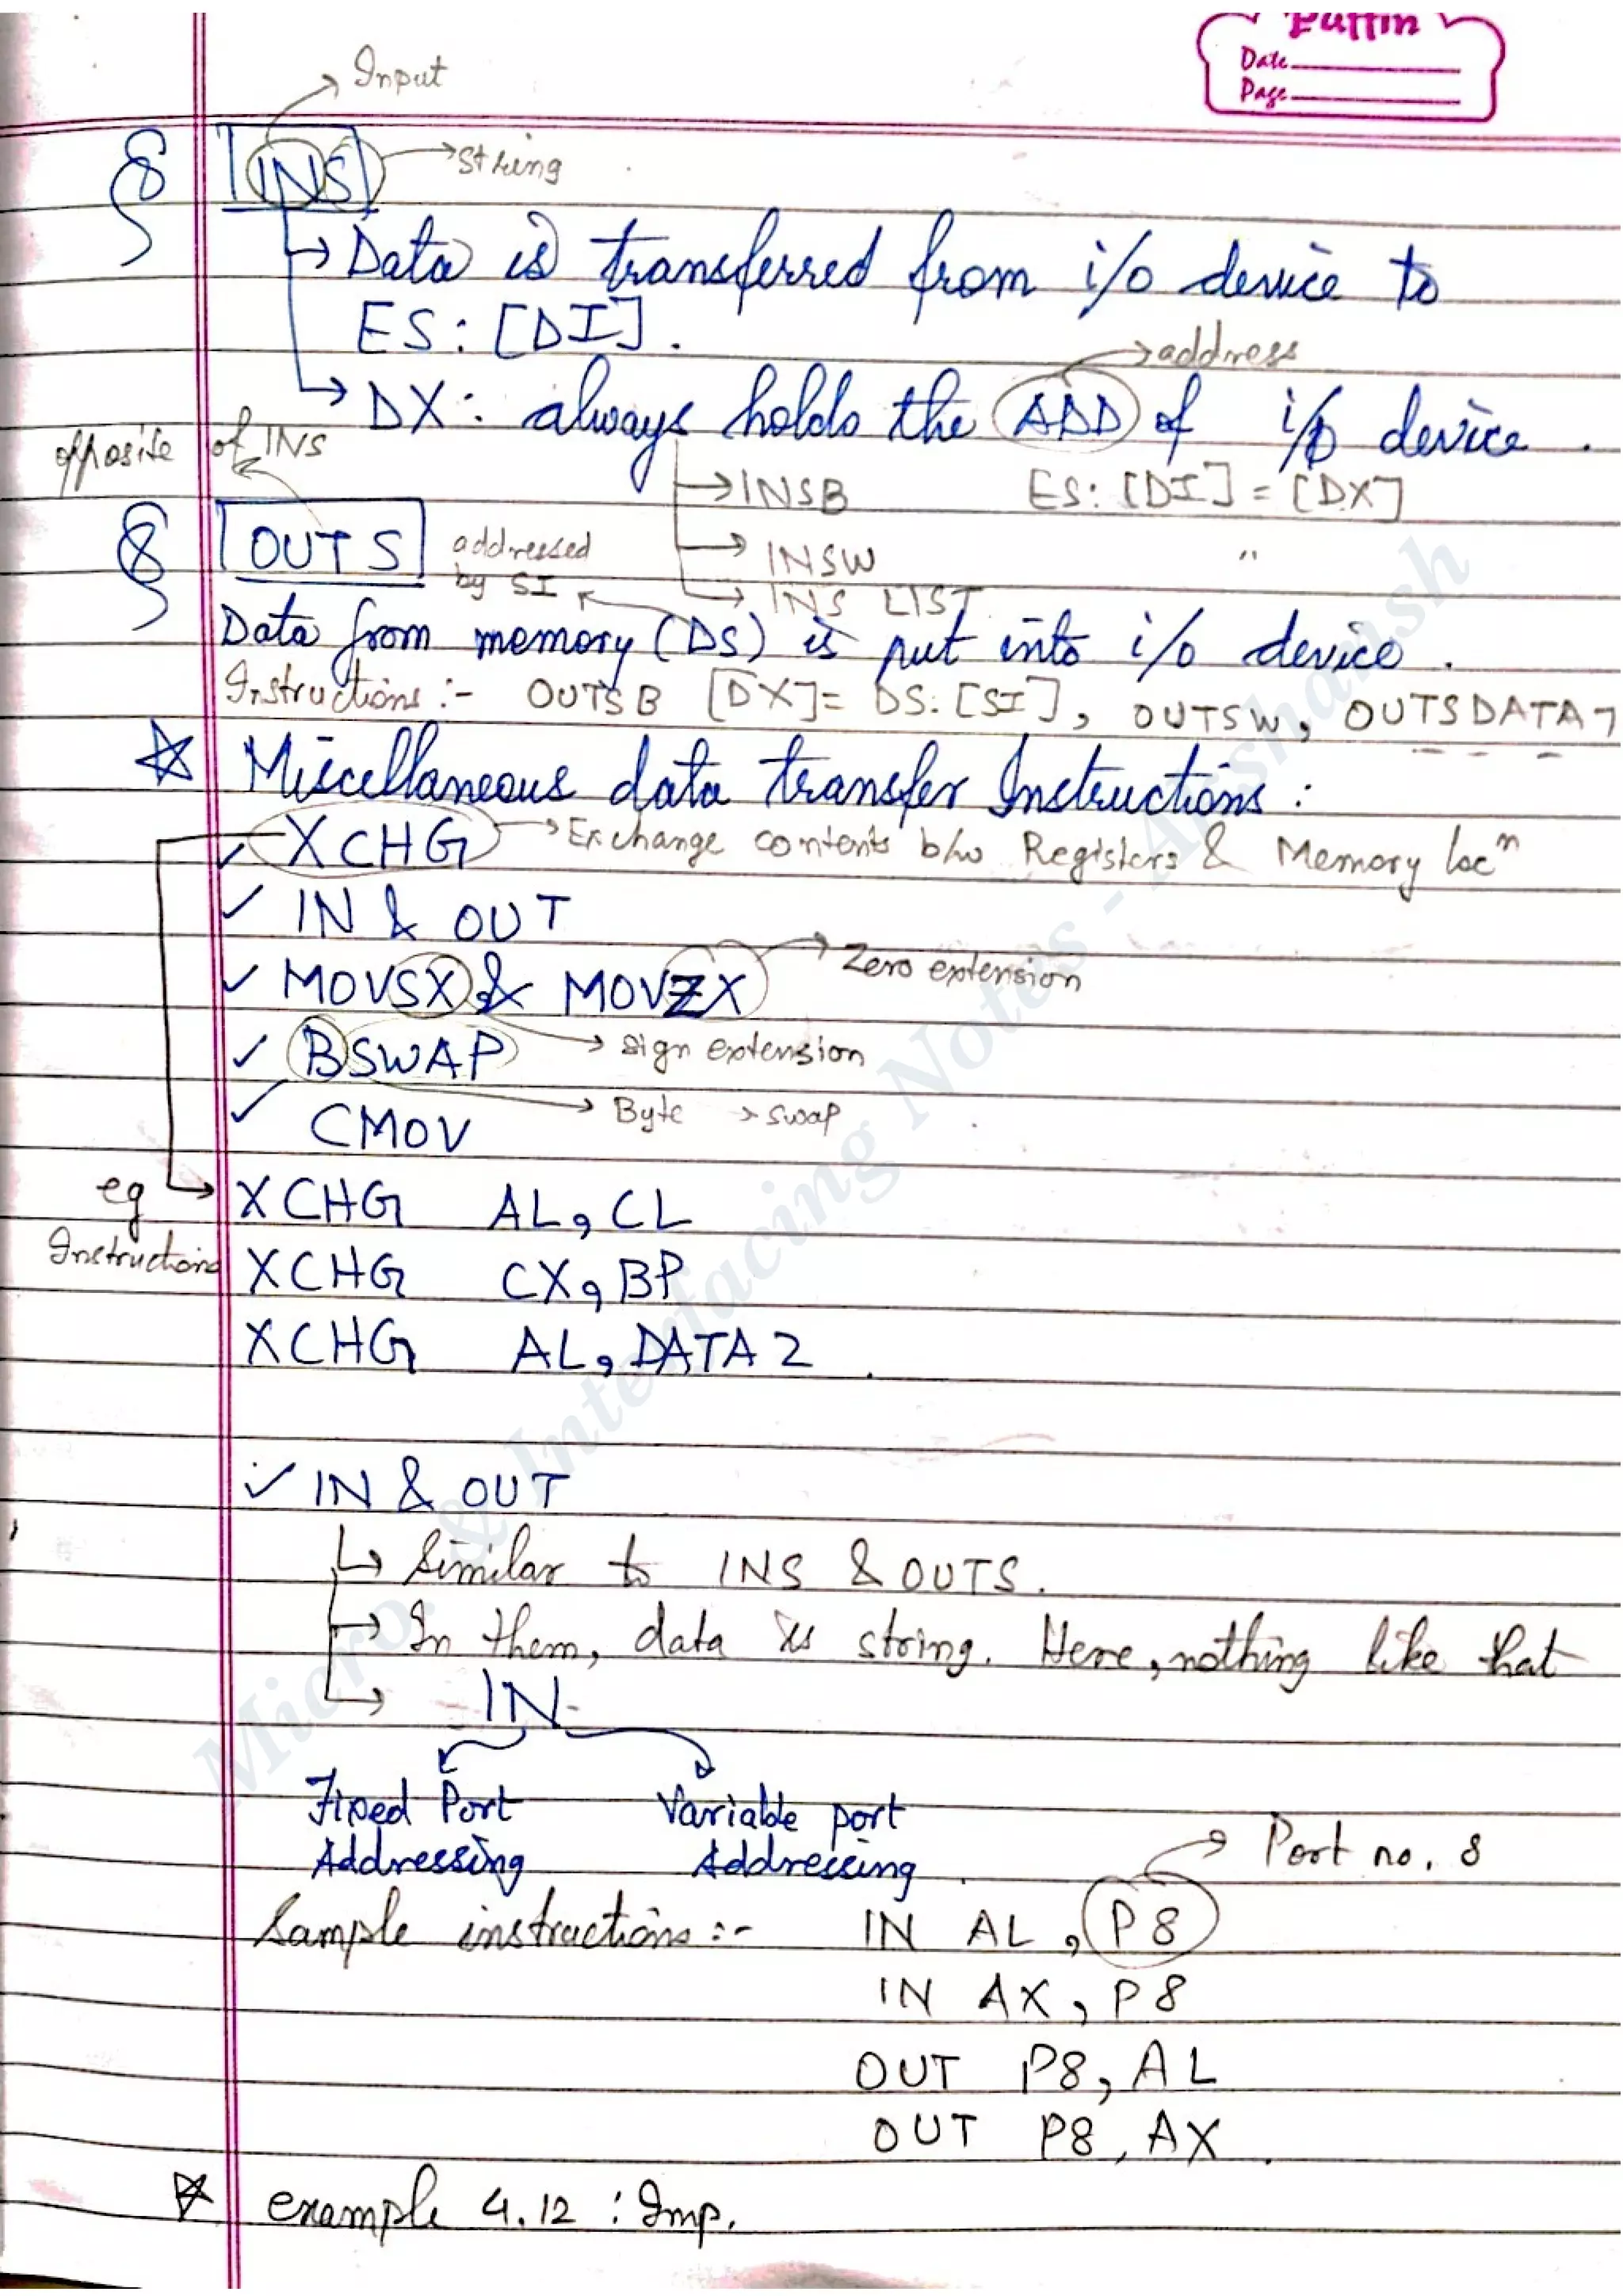 Puffin
Date
Page
Input
INS
String
Data is transferred from i/o device to
ES: [DI].
address
DX: always holds the ADD of i/o device.
opposite of INS
INSB ES: [DI] = [DX]
OUTS
addressed
by SI
INSW "
INS LIST
Data from memory (DS) is put into i/o device.
Instructions :- OUTSB [DX]= DS:[SI], OUTSW, OUTSDATA7
Miscellaneous data transfer Instructions :
✓ XCHG → Exchange contents b/w Registers & Memory locⁿ
✓ IN & OUT
Zero extension
✓ MOVSX & MOVZX
✓ BSWAP
Sign extension
Byte → swap
✓ CMOV
eg
Instructions
XCHG AL, CL
XCHG CX, BP
XCHG AL, DATA2.
✓ IN & OUT
Similar to INS & OUTS.
In them, data is string. Here, nothing like that
IN
Fixed Port
Addressing
Variable port
Addressing.
Port no. 8
Sample instructions :- IN AL, P8
IN AX, P8
OUT P8, AL
OUT P8, AX.
example 4.12 : Imp.
Micro. & Interfacing Notes - Arshansh